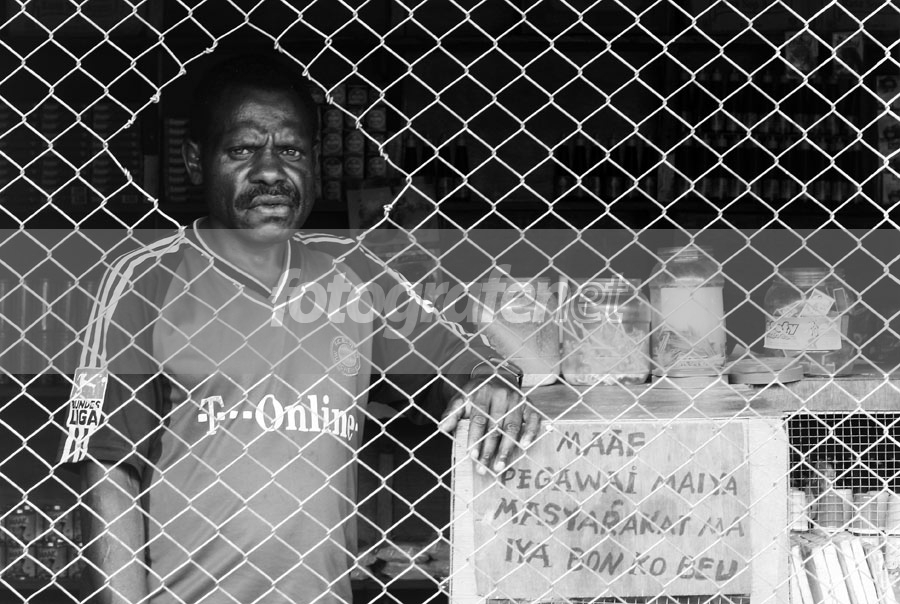 fotografer.net
BUNDES
LIGA
T··Online·
MAAF
PEGAWAI MAIYA
MASYARAKAT MA
IYA BON KO BEU